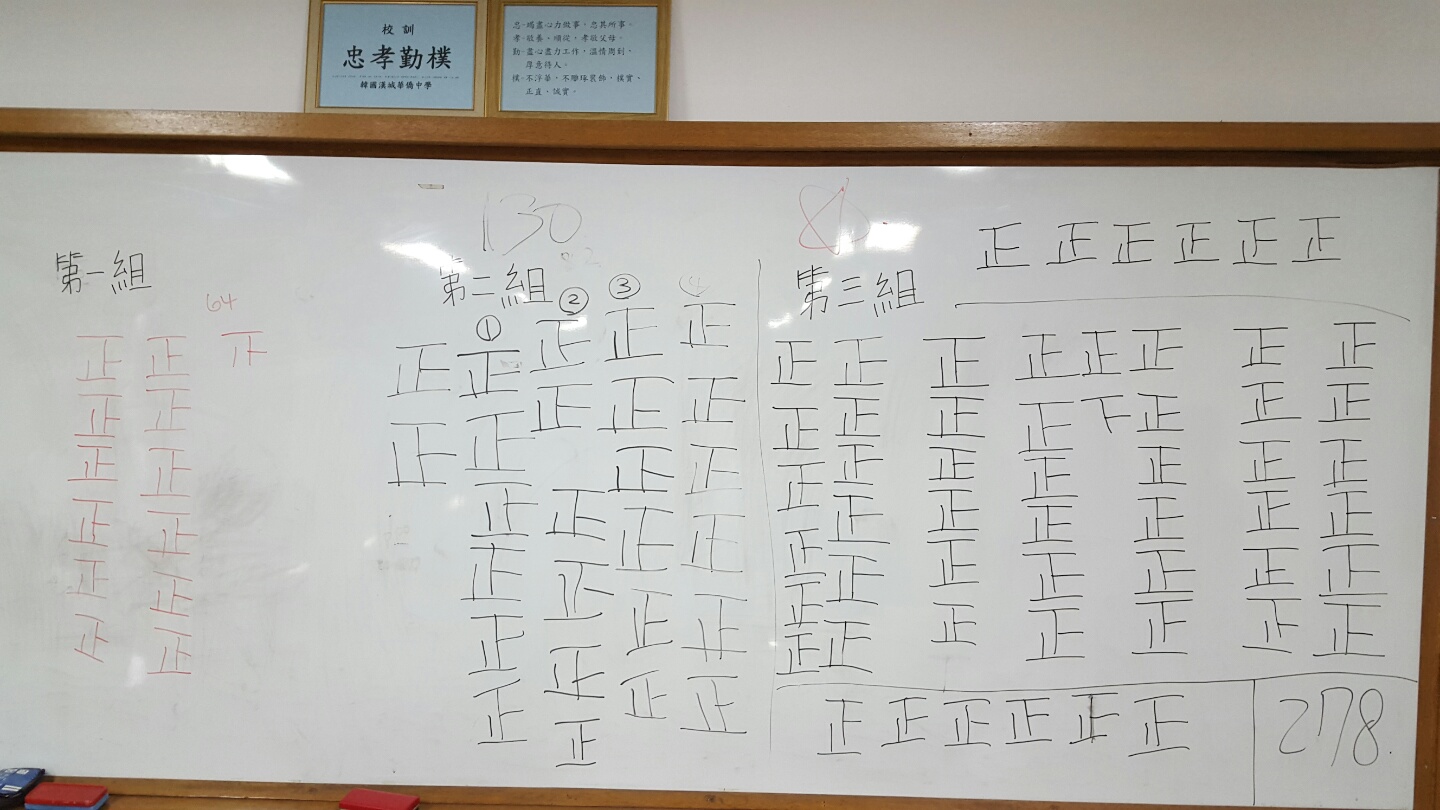 校訓
忠孝勤樸
韓國漢城華僑中學
忠-竭盡心力做事，忠其所事。
孝-敬養、順從，孝敬父母。
勤-盡心盡力工作，溫情周到，
厚意待人。
樸-不浮華，不雕琢裝飾，樸實、
正直、誠實。
第一組
64
正正正正正正
正正正正正正
正
130
第二組
正正
①
正正正正正正
②
正正正正正正
③
正正正正正正
④
正正正正正正
第三組
正正正正正正
正正正正正正
正正正正正正
正正正正正正
正正正正正正
正下
正正正正正正
正正正正正正
正正正正正正
正正正正正正
278.